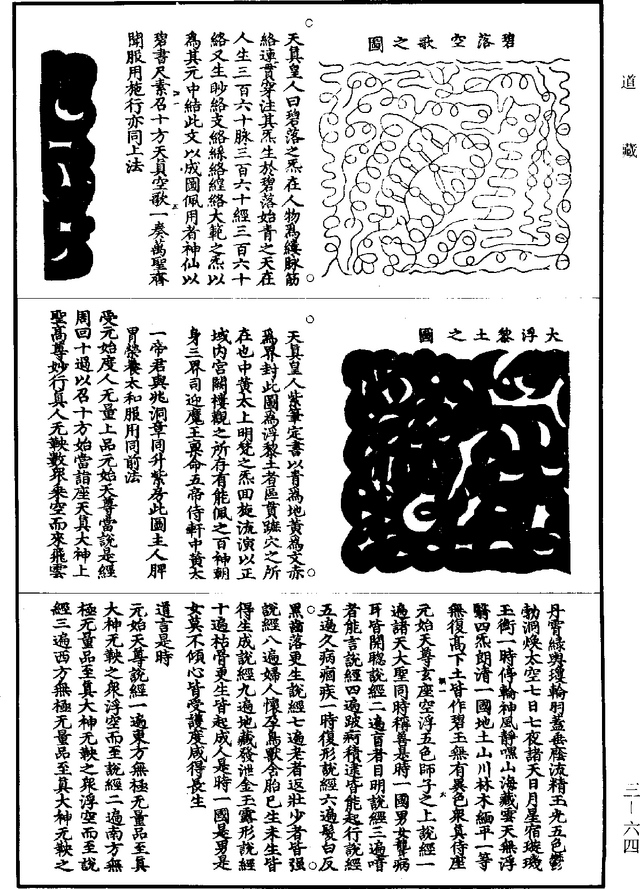 道藏
碧落空歌之圖
天真皇人曰碧落之炁在人物爲縷脉筋
絡連貫穿注其炁生於碧落始青之天在
人生三百六十脉三百六十經三百六十
絡又生眇絡支絡絲絡緸絡大範之炁以
爲其元中結此文以成圖佩用者神仙以
碧書尺素召十方天真空歌一奏萬聖齊
聞服用施行亦同上法
大浮黎土之圖
天真皇人紫筆定書以青爲地黃爲文亦
爲界封此圖爲浮黎土者區貫蹠穴之所
在也中黃太上明梵之炁回旋流演以正
域内宮闕樓觀之所存有能佩之百神朝
身三界司迎魔王稟命五帝侍軒中黃太
一帝君與兆洞章同升紫房此圖主人脾
胃榮養太和服用同前法
受元始度人无量上品元始天尊當說是經
周回十過以召十方始當詣座天真大神上
聖高尊妙行真人无鞅數衆乘空而來飛雲
丹霄緑輿瓊輪羽蓋垂䕃流精玉光五色鬱
勃洞煥太空七日七夜諸天日月星宿璇璣
玉衡一時停輪神風靜嘿山海藏雲天無浮
翳四炁朗清一國地土山川林木緬平一等
無復高下土皆作碧玉無有異色衆真侍座
元始天尊玄座空浮五色師子之上說經一
遍諸天大聖同時稱善是時一國男女聾病
耳皆開聰說經二遍盲者目明說經三遍喑
者能言說經四遍跛痾積逮皆能起行說經
五遍久病痼疾一時復形說經六遍髮白反
黑齒落更生說經七遍老者返壯少者皆强
說經八遍婦人懷孕鳥獸含胎已生未生皆
得生成說經九遍地藏發泄金玉露形說經
十遍枯骨更生皆起成人是時一國是男是
女莫不傾心皆受護度咸得長生
道言是時
元始天尊說經一遍東方無極无量品至真
大神无鞅之衆浮空而至說經二遍南方無
極无量品至真大神无鞅之衆浮空而至說
經三遍西方無極无量品至真大神无鞅之
三—六四